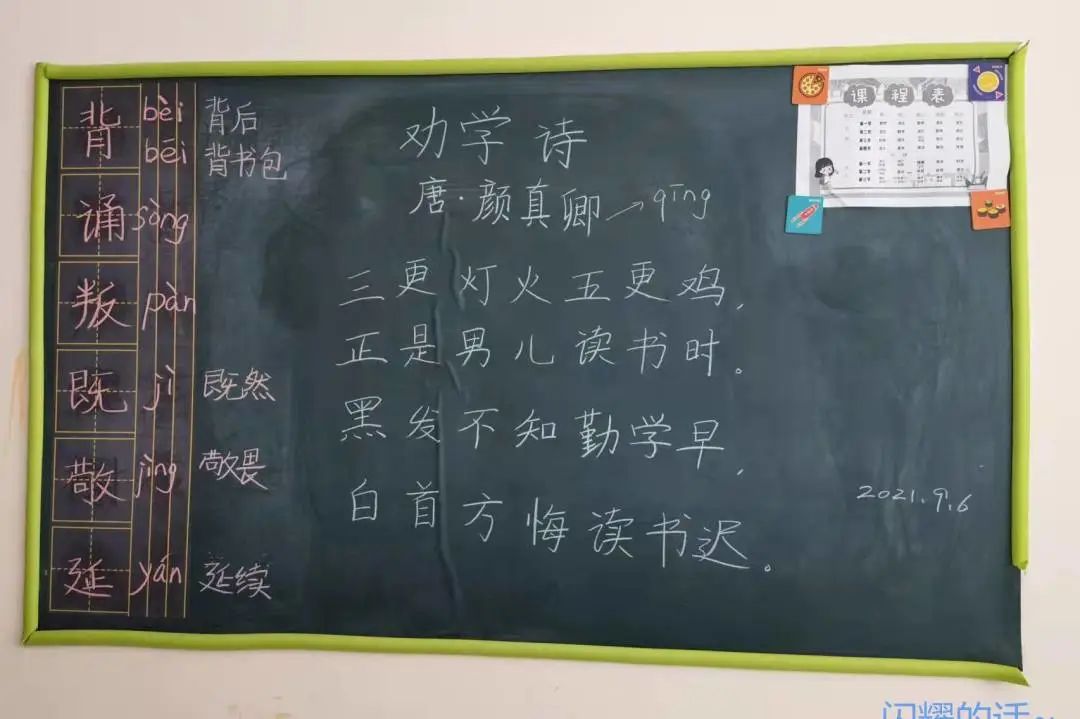 背 bèi 背后
bēi 背书包
诵 sòng
叛 pàn
既 jì 既然
敬 jìng 敬畏
延 yán 延续
劝学诗
唐·颜真卿→qīng
三更灯火五更鸡,
正是男儿读书时。
黑发不知勤学早,
白首方悔读书迟。
课程表
2021.9.6
闪耀的话